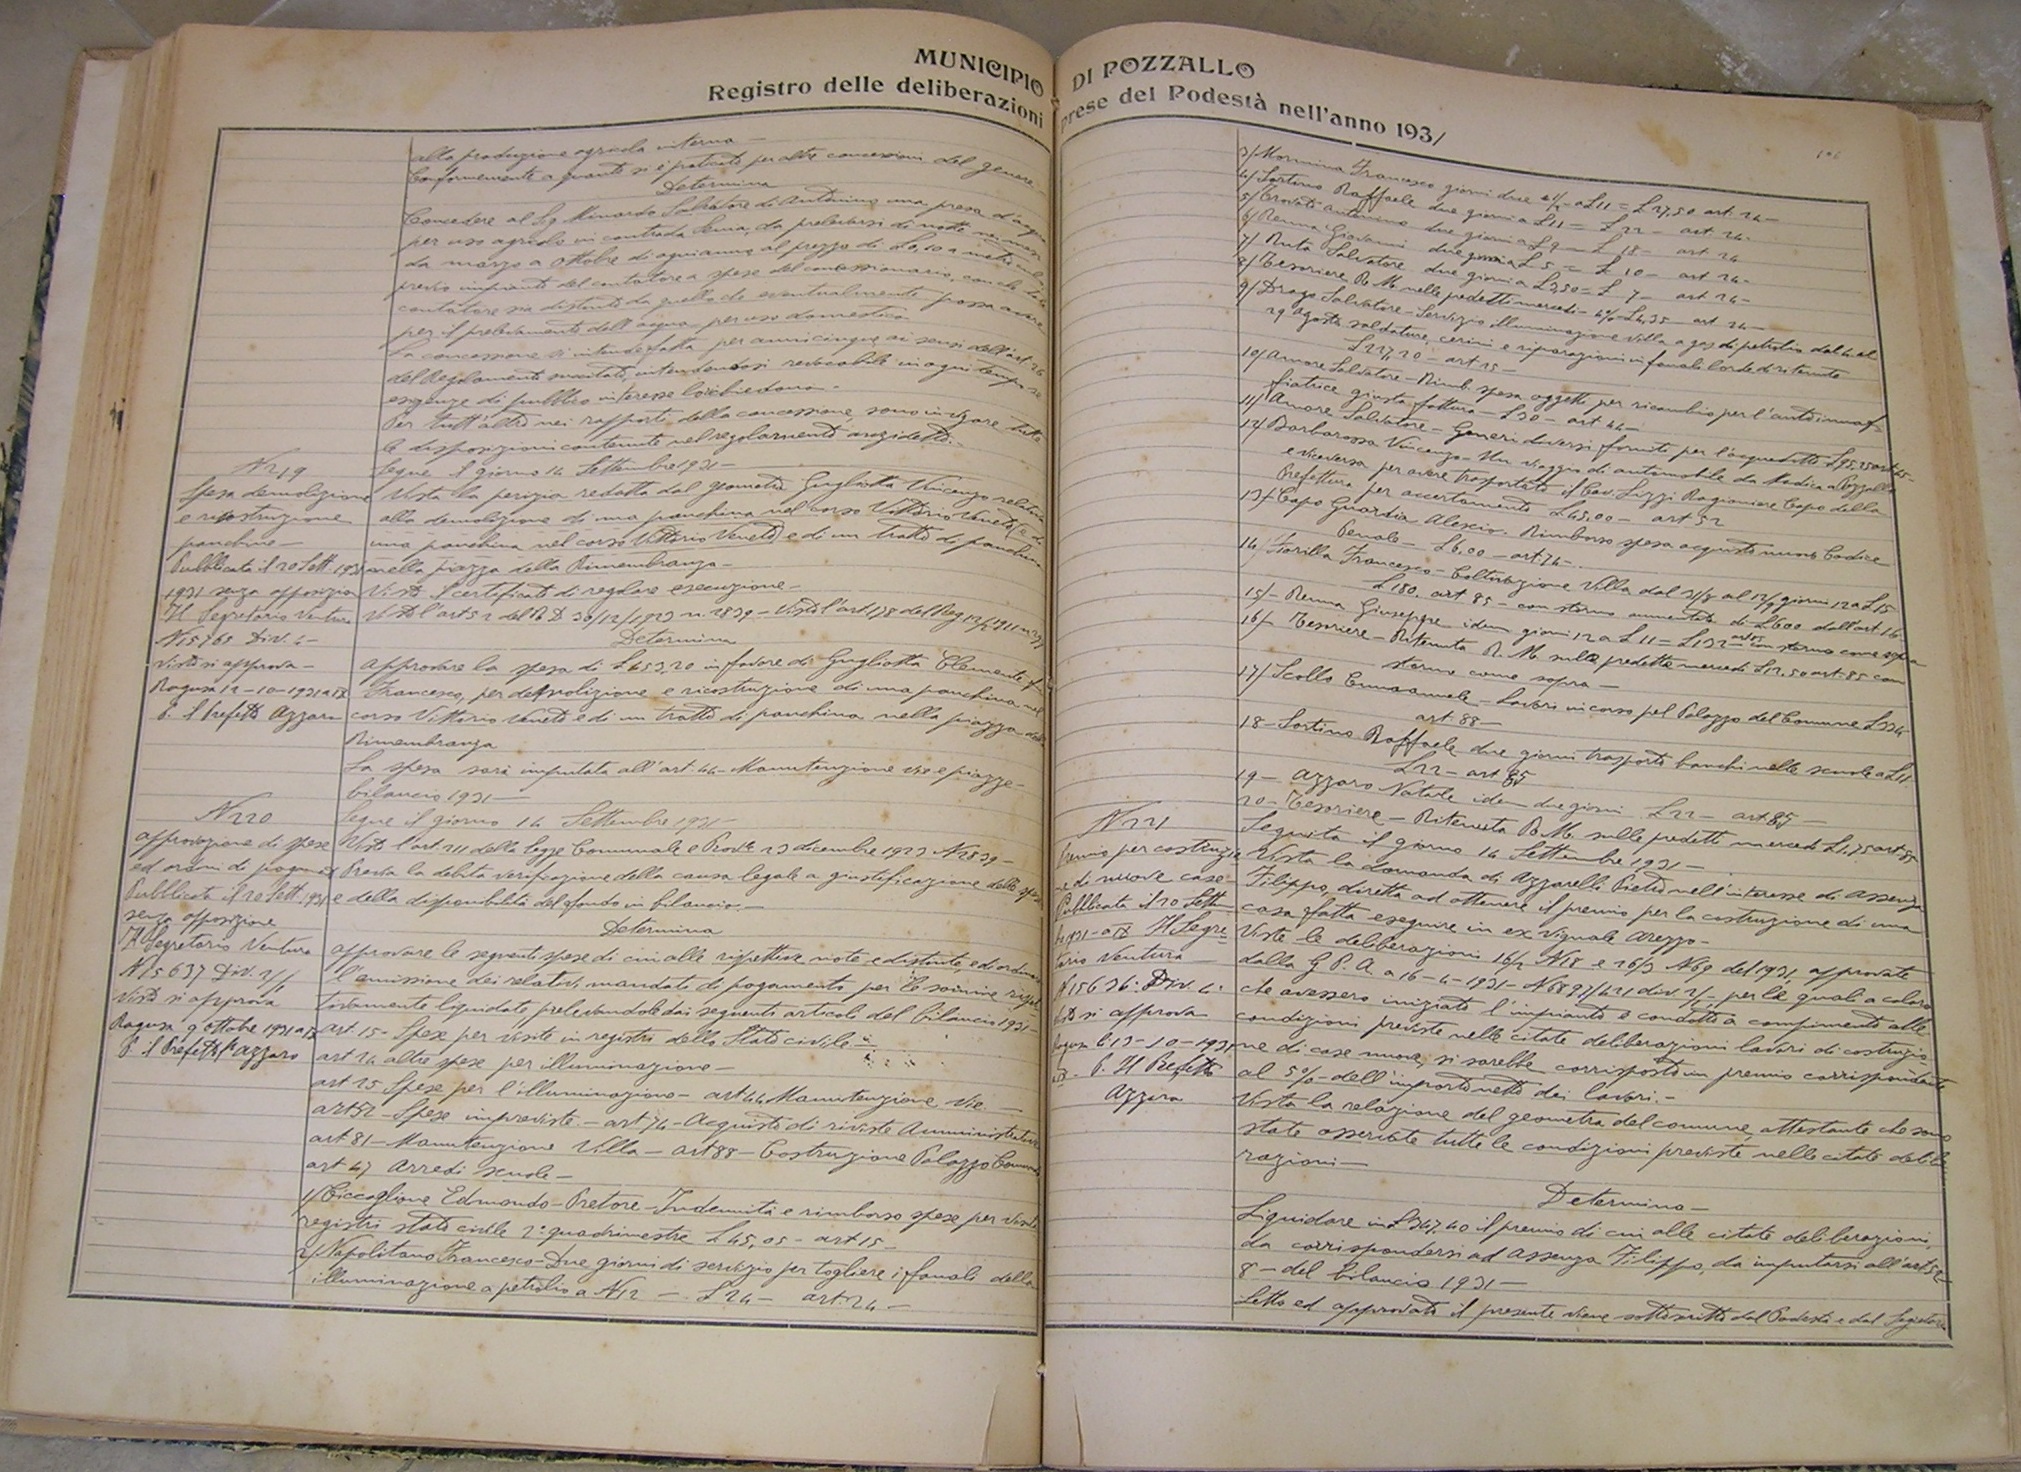 MUNICIPIO DI POZZALLO
Registro delle deliberazioni prese del Podestà nell'anno 1931
alta produzione agricola interna —
Conformemente a quanto si è praticato per altre concessioni del genere —
Determina
Concedere al Sg. Minardo Salvatore di Antonino una presa d'acqua
per uso agricolo in contrada Scura, da prelevarsi di notte nei mesi
da marzo a ottobre di ogni anno al prezzo di L 0,10 a metro cubo
previo impianto del contatore a spese del concessionario, con che tale
contatore sia distinto da quello che eventualmente possa avere
per il prelevamento dell'acqua per uso domestico.
La concessione si intende fatta per anni cinque, ai sensi dell'art. 26
del Regolamento succitato, intendendosi revocabile in ogni tempo se
esigenze di pubblico interesse lo richiedano.
Per tutt'altro nei rapporti della concessione sono in vigore tutte
le disposizioni contenute nel regolamento anzidetto.
N 219
Spesa demolizione
e ricostruzione
panchine —
Pubblicata il 20 Sett. 1931
1931 senza opposizione
Il Segretario Ventura
N 15768 Div. 4
Visto si approva —
Ragusa 12-10-1931 a IX
P. il Prefetto Azzaro
Segue il giorno 14 Settembre 1931 —
Vista la perizia redatta dal geometra Gugliotta Vincenzo relativa
alla demolizione di una panchina nel corso Vittorio Veneto e di
una panchina nel corso Vittorio Veneto e di un tratto di panchina
nella piazza della Rimembranza —
Visto il certificato di regolare esecuzione —
Visto l'art 52 del R D 30/12/1923 n. 2839 — Visto l'art 178 del Reg 12/2/1911 n 297
Determina
approvare la spesa di L 453,20 in favore di Gugliotta Clemente fu
Francesco, per demolizione e ricostruzione di una panchina nel
corso Vittorio Veneto e di un tratto di panchina nella piazza della
Rimembranza
La spesa sarà imputata all'art. 44 — Manutenzione vie e piazze —
bilancio 1931 —
N 220
approvazione di spese
ed ordini di pagam.
Pubblicata il 20 Sett. 1931
senza opposizione
Il Segretario Ventura
N 15637 Div. 2/1
Visto si approva
Ragusa 9 Ottobre 1931 a IX
P. il Prefetto Azzaro
Segue il giorno 14 Settembre 1931 —
Visto l'art. 211 della legge Comunale e Prov.le 23 dicembre 1923 N 2839 —
Previa la debita verificazione della causa legale a giustificazione delle spese
e della disponibilità del fondo in bilancio. —
Determina
approvare le seguenti spese di cui alle rispettive note e distinte, e di ordinare
l'emissione dei relativi mandati di pagamento per le somme rispet-
tivamente liquidate prelevandole dai seguenti articoli del bilancio 1931 —
art. 15 — Spese per visite in registri dello Stato civile —
art 24 altre spese per illuminazione —
art 25 Spese per l'illuminazione — art 44 Manutenzione vie —
art 52 — Spese impreviste — art 74 — Acquisto di riviste Amministrative
art 81 — Manutenzione Villa — art 88 — Costruzione Palazzo Comunale
art 47 Arredi scuole —
1/ Ciccaglione Edmondo — Pretore — Indennità e rimborso spese per visite
registri stato civile 2° quadrimestre L 45,05 — art 15 —
2/ Napolitano Francesco — Due giorni di servizio per togliere i fanali della
illuminazione a petrolio a N 12 — L 24 — art. 24 —
3/ Mormina Francesco giorni due e 1/2 a L 11 = L 27,50 art. 24 —
4/ Sortino Raffaele due giorni a L 11 = L 22 — art. 24 —
5/ Crovato Antonino due giorni a L 9 = L 18 — art. 24
6/ Renna Giovanni due giorni a L 5 = L 10 — art 24 —
7/ Ruta Salvatore due giorni a L 3,50 = L 7 — art 24 —
8/ Tesoriere R. M. nelle predette mercedi — 4% L 4,35 — art 24 —
9/ Drago Salvatore — Servizio illuminazione Villa a gas di petrolio dal 4 al
29 agosto saldature, cerini e riparazioni in fanali lorde di ritenute
L 217,20 — art 25 —
10/ Amore Salvatore — Rimb. spesa oggetti per ricambio per l'autoinnaf-
fiatrice giusta fattura — L 30 — art 44 —
11/ Amore Salvatore — Generi diversi forniti per l'acquedotto L 95,25 art 45 —
12/ Barbarossa Vincenzo — Un viaggio di automobile da Modica a Pozzallo
e viceversa per avere trasportato il Cav. Luzzi Ragioniere Capo della
Prefettura per accertamento L 45,00 — art 52
13/ Capo Guardia Alescio. Rimborso spesa acquisto nuovo Codice
Penale — L 6,00 — art. 74 —
14/ Fiorilla Francesco — Coltivazione Villa dal 31/8 al 12/9 giorni 12 a L 15
L 180 art 85 — con storno aumentato di L 600 dall'art. 16 —
15/ — Renna Giuseppe idem giorni 12 a L 11 = L 132 art 85 con storno come sopra
16/ — Tesoriere — Ritenuta R. M. sulle predette mercedi L 12,50 art 85 con
storno come sopra —
17/ Scollo Emmanuele — Lavori in corso pel Palazzo del Comune L 334
art. 88 —
18 — Sortino Raffaele due giorni trasporto banchi nelle scuole a L 11
L 22 — art 85
19 — Azzaro Natale idem due giorni L 22 — art 85 —
20 — Tesoriere — Ritenuta R. M. sulle predette mercedi L 1,75 art 85
N 221
Premio per costruzio-
ne di nuove case
Pubblicata il 20 Sett.
1931 — a IX Il Segre-
tario Ventura
N 15636 Div. 4
Visto si approva
Ragusa li 13-10-1931
a IX. P. Il Prefetto
Azzaro
Seguita il giorno 14 Settembre 1931 —
Vista la domanda di Azzarelli Pietro nell'interesse di Assenza
Filippo, diretta ad ottenere il premio per la costruzione di una
casa fatta eseguire in ex Vignale Arezzo —
Viste le deliberazioni 16/2 N 18 e 26/3 N 69 del 1931, approvate
dalla G. P. A. a 16-4-1931 — N 6897/421 div. 2/1 — per le quali a coloro
che avessero iniziato l'impianto e condotto a compimento alle
condizioni previste nelle citate deliberazioni lavori di costruzio-
ne di case nuove, si sarebbe corrisposto un premio corrispondente
al 5% dell'importo netto dei lavori. —
Vista la relazione del geometra del comune, attestante che sono
state osservate tutte le condizioni previste nelle citate delibe-
razioni —
Determina —
Liquidare in L 347,40 il premio di cui alle citate deliberazioni,
da corrispondersi ad Assenza Filippo, da imputarsi all'art 52 —
8 — del bilancio 1931 —
Letto ed approvato il presente viene sottoscritto dal Podestà e dal Segretario